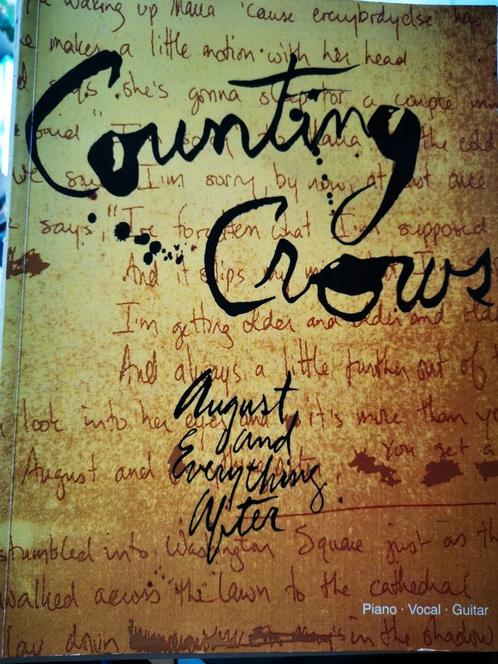 waking up Maria 'cause everybody else has
makes a little motion with her head
she's gonna for a couple
Counting
said the
I'm sorry, by now, at out once
says, "I've forgotten what I'm supposed
Crows
And it slips my
I'm getting older and older and
And always a little further out of
August
look into her eyes and it's more than
and
Everything
You get a
August and
After
stumbled into Washington Square just as th
walked across the lawn to the cathedral
Piano · Vocal · Guitar
lay down in the shadow